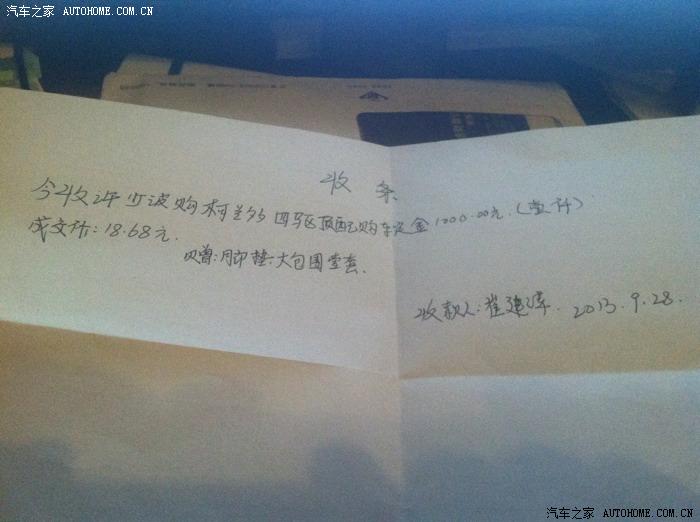 汽车之家 AUTOHOME.COM.CN
收 条
今收许少波购柯兰多四驱顶配购车定金1000.00元.(壹仟)
成交价:18.68元.
贝曽:脚垫.大包围壹套.
收款人:崔建 2013.9.28.
汽车之家 AUTOHOME.COM.CN